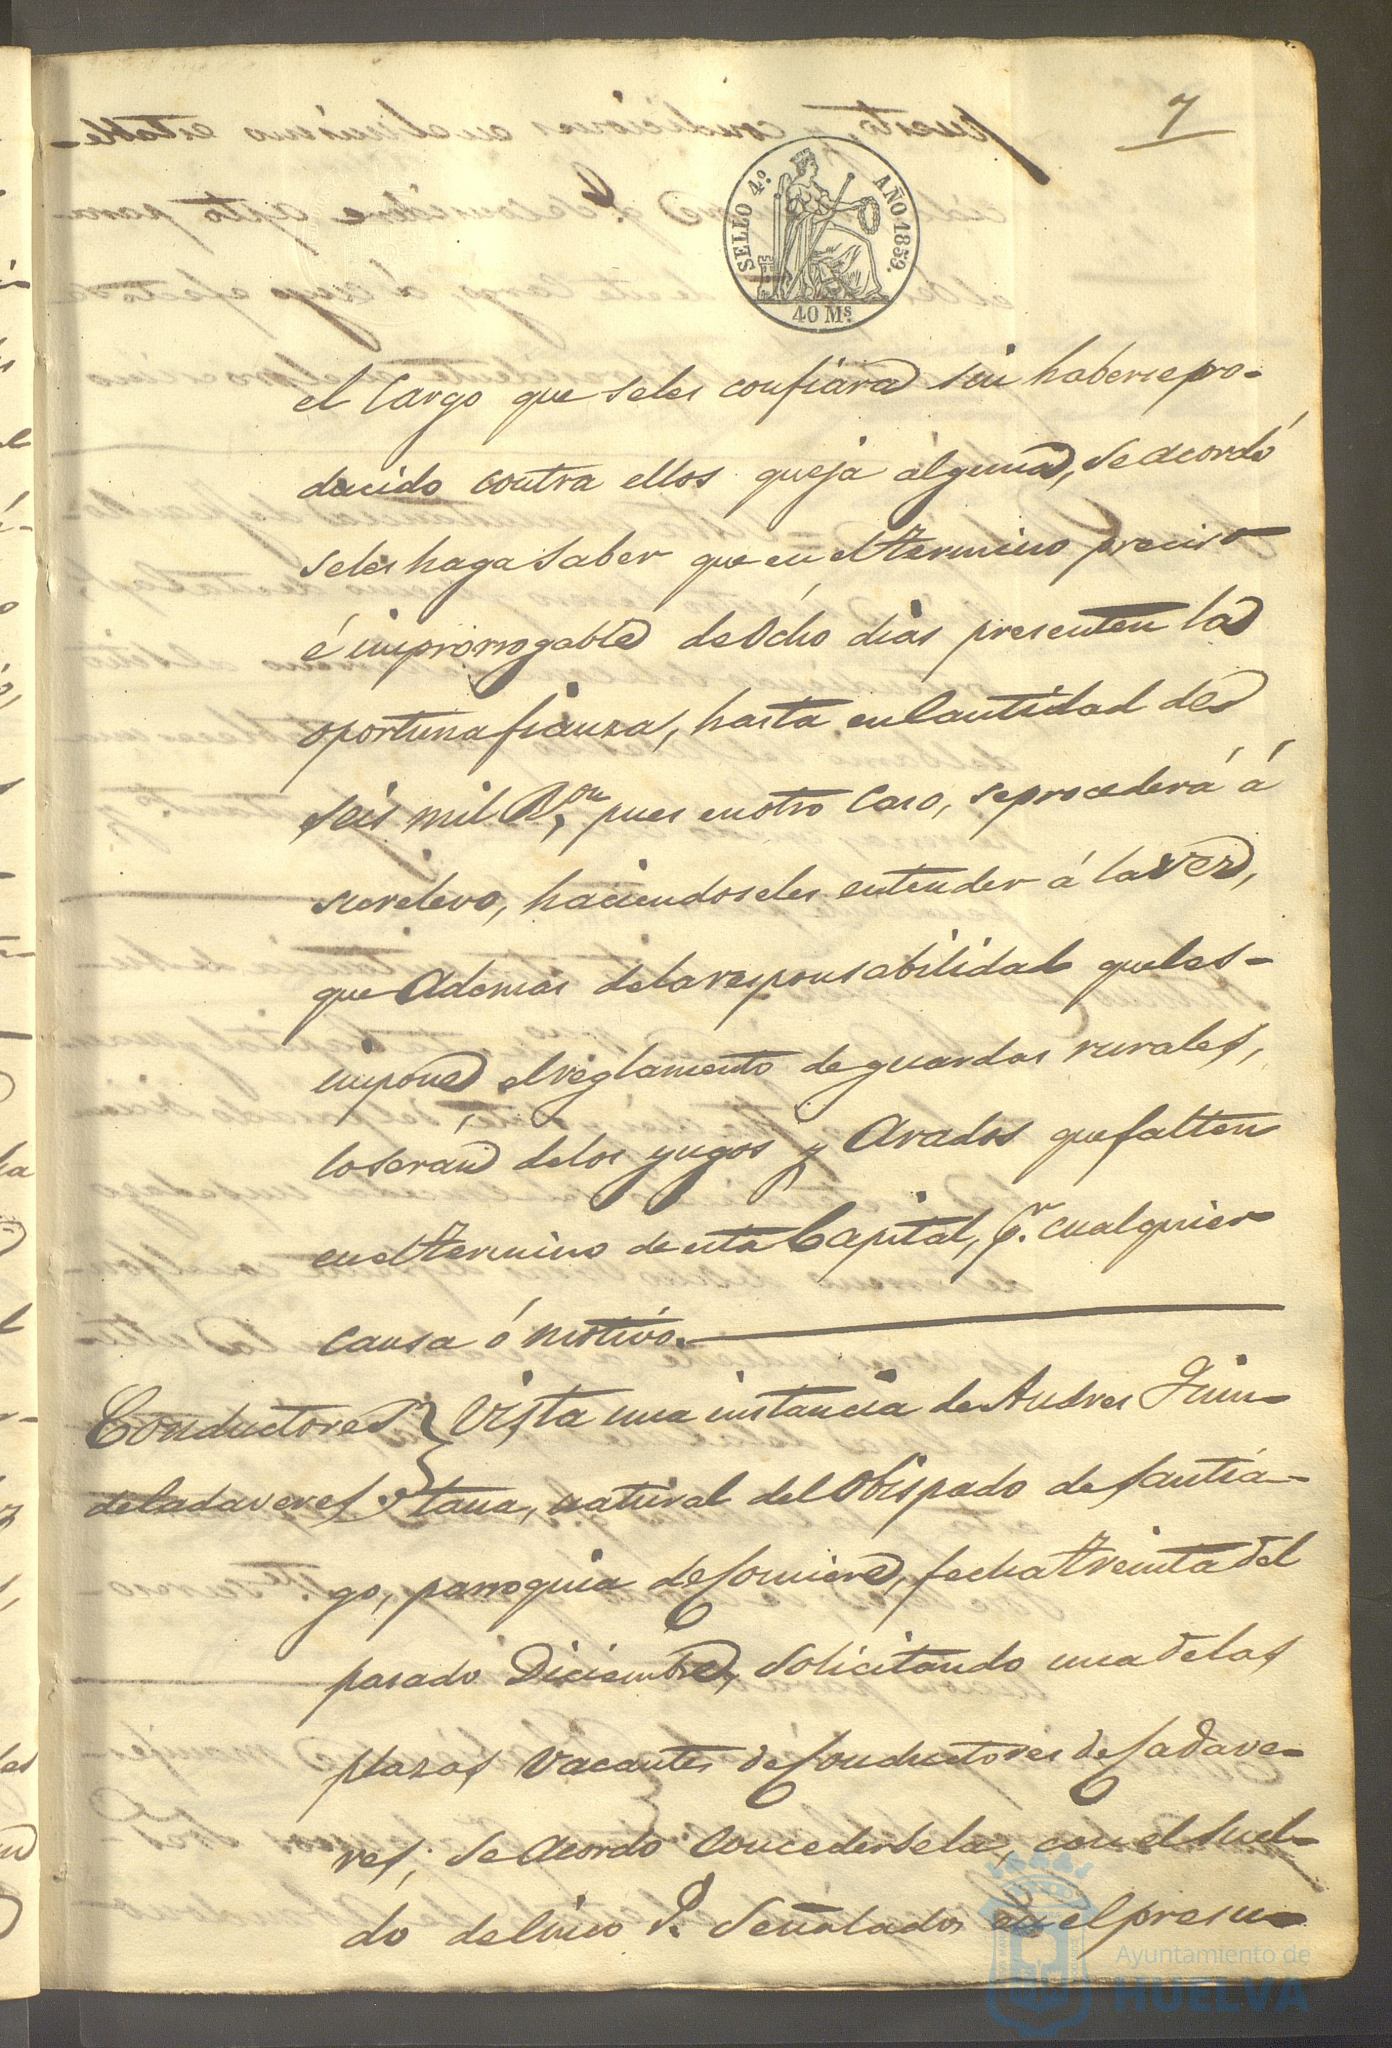 7
SELLO 4.º AÑO 1859.
40 Ms.
el Cargo que seles confiara sin haberse pro-
ducido contra ellos queja alguna, se acordó
seles haga saber que en el termino preciso
é improrrogable de ocho dias presenten la
oportuna fianza, hasta en Cantidad de
seis mil R.on, pues en otro Caso, se procederá á
su relevo, haciendoseles entender á la vez,
que Ademas dela responsabilidad que les-
impone el reglamento de guardas rurales,
lo serán delos yugos y Arados que falten
en el termino de esta Capital, p.r cualquier
causa ó motivo.
Conductores Vista una instancia de Andres
de Cadaveres tana, natural del Obispado de Santia-
go, parroquia de fecha treinta del
pasado Diciembre, solicitando una delas
plazas Vacantes de Conductores de Cadave-
res; se Acordó Concedersela, con el suel-
do de Cinco r.s señalados en el presu-
Ayuntamiento de
HUELVA